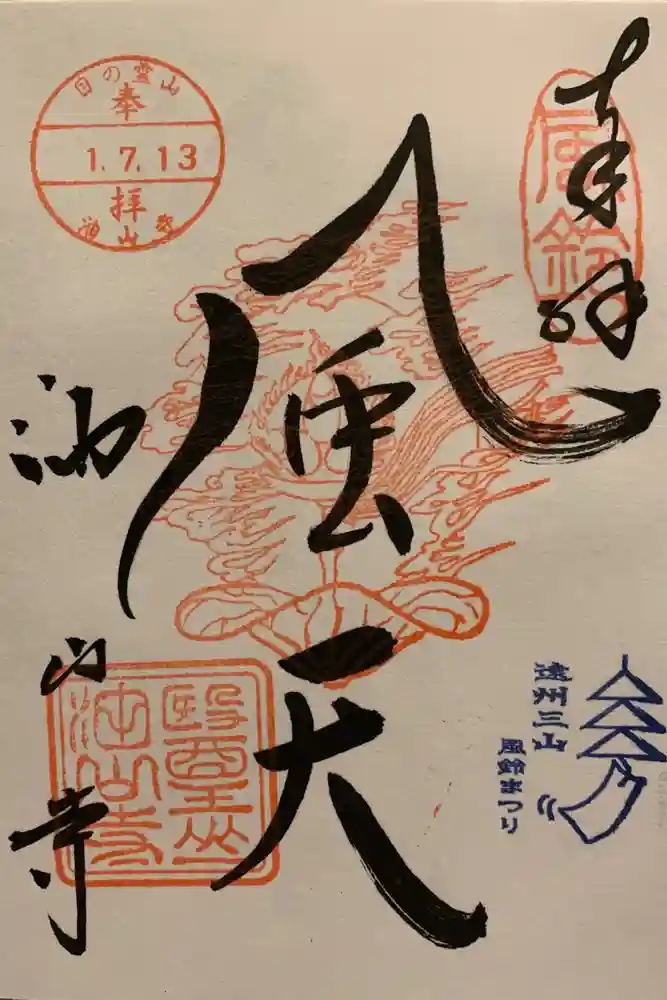 奉拝
風鈴
風天
油山寺
目の霊山
奉
1.7.13
拝
油山寺
遠州三山
風鈴まつり